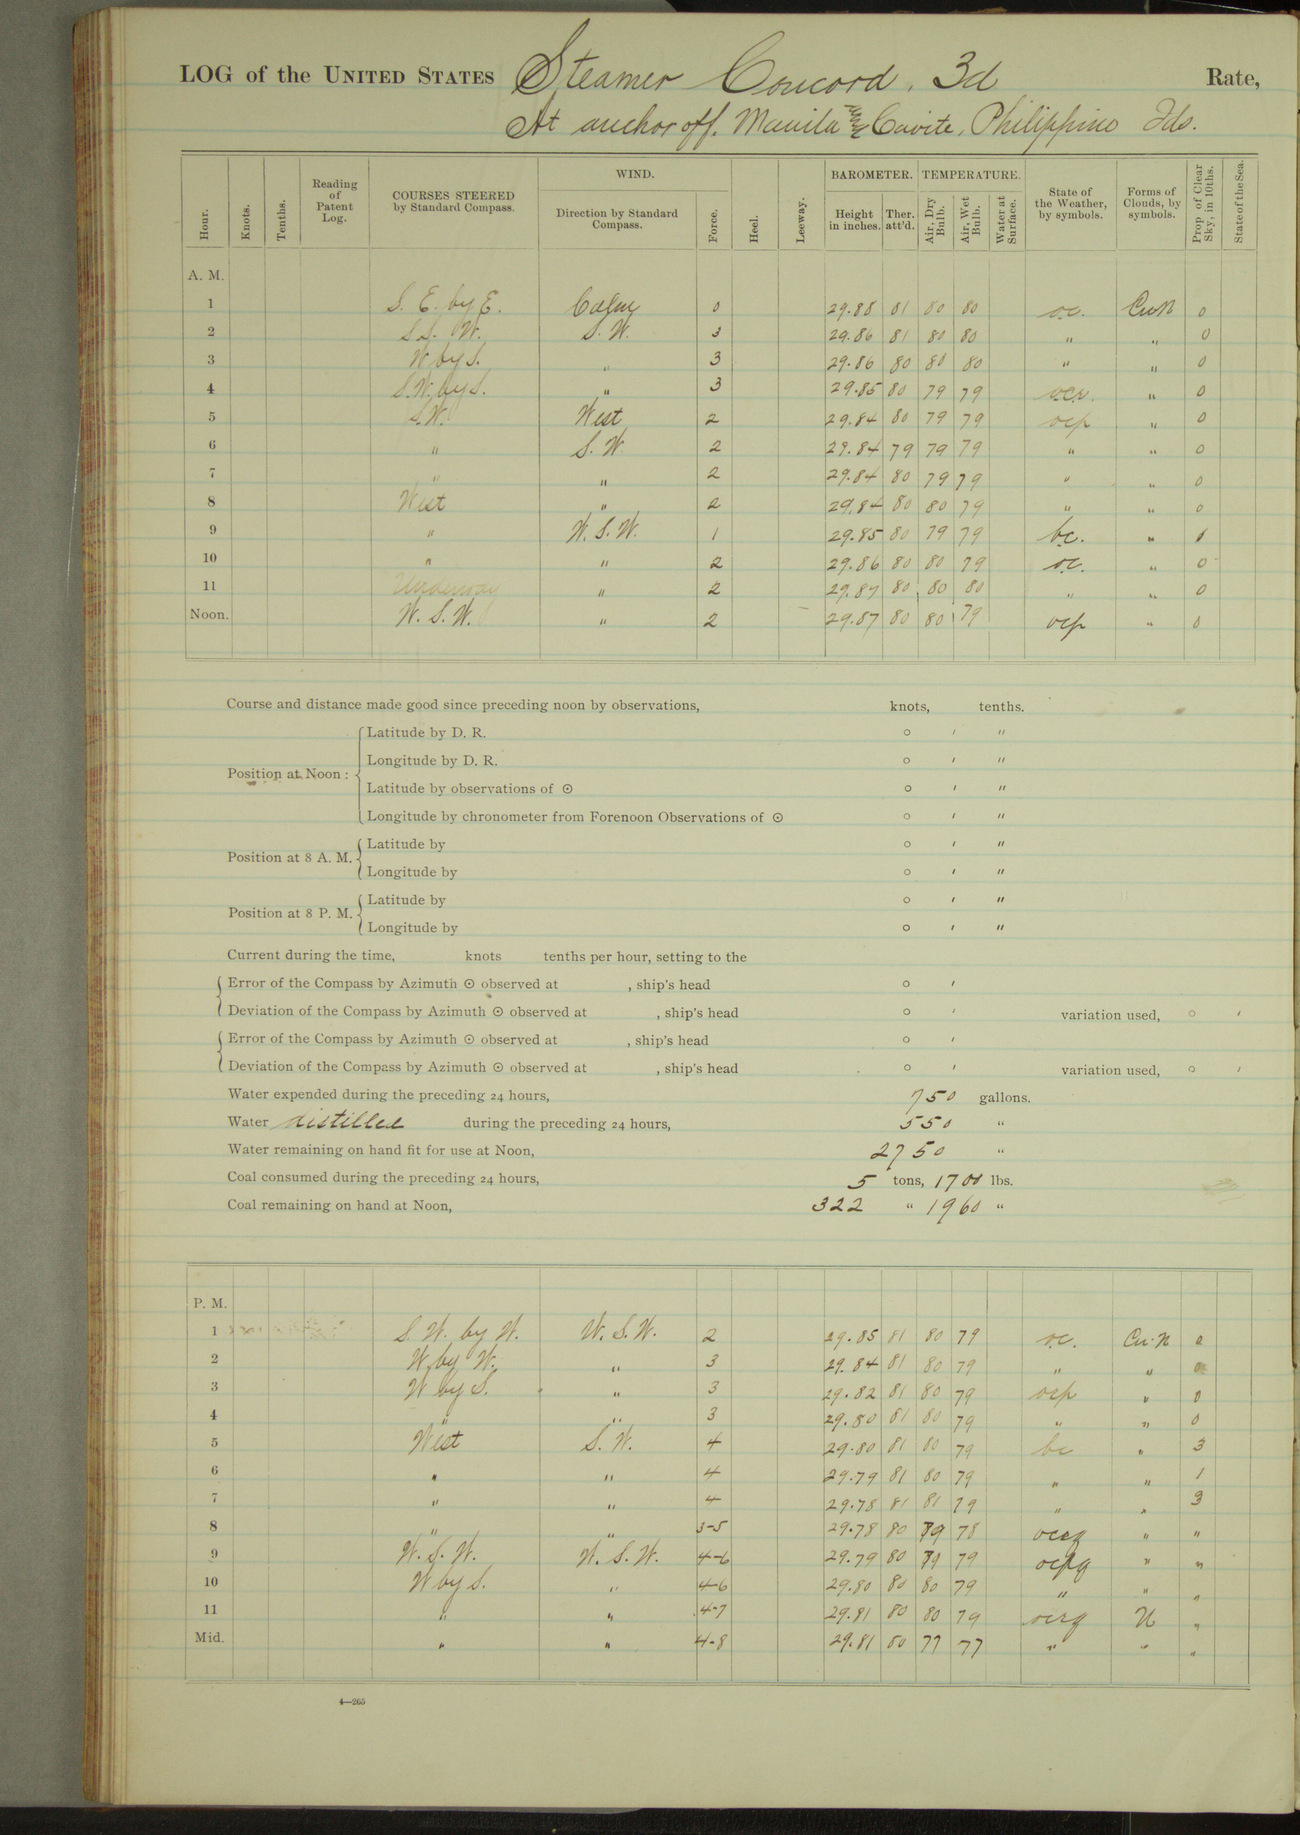 LOG of the UNITED STATES Steamer Concord, 3d Rate,
At anchor off. Manila Cavite, Philippine Ids.
Hour. Knots. Tenths. Reading of Patent Log. COURSES STEERED by Standard Compass. WIND. Direction by Standard Compass. Force. Heel. Leeway. BAROMETER. Height in inches. Ther. att'd. TEMPERATURE. Air, Dry Bulb. Air, Wet Bulb. Water at Surface. State of the Weather, by symbols. Forms of Clouds, by symbols. Prop of Clear Sky, in 10ths. State of the Sea.
A. M.
1 S. E. by E. Calm 0 29.88 81 80 80 oc. CuN 0
2 S.S. W. S. W. 3 29.86 81 80 80 " " 0
3 W by S. " 3 29.86 80 80 80 " " 0
4 S.W. by S. " 3 29.85 80 79 79 ocr. " 0
5 S.W. West 2 29.84 80 79 79 ocp " 0
6 " S. W. 2 29.84 79 79 79 " " 0
7 " " 2 29.84 80 79 79 " " 0
8 West " 2 29.84 80 80 79 " " 0
9 " W. S. W. 1 29.85 80 79 79 bc. " 1
10 " " 2 29.86 80 80 79 oc. " 0
11 Underway " 2 29.87 80 80 80 " " 0
Noon. W. S. W. " 2 29.87 80 80 79 ocp " 0
Course and distance made good since preceding noon by observations, knots, tenths.
Position at Noon :
Latitude by D. R. ° ′ ″
Longitude by D. R. ° ′ ″
Latitude by observations of ☉ ° ′ ″
Longitude by chronometer from Forenoon Observations of ☉ ° ′ ″
Position at 8 A. M.
Latitude by ° ′ ″
Longitude by ° ′ ″
Position at 8 P. M.
Latitude by ° ′ ″
Longitude by ° ′ ″
Current during the time, knots tenths per hour, setting to the
Error of the Compass by Azimuth ☉ observed at , ship's head ° ′
Deviation of the Compass by Azimuth ☉ observed at , ship's head ° ′ variation used, ° ′
Error of the Compass by Azimuth ☉ observed at , ship's head ° ′
Deviation of the Compass by Azimuth ☉ observed at , ship's head ° ′ variation used, ° ′
Water expended during the preceding 24 hours, 750 gallons.
Water distilled during the preceding 24 hours, 550 "
Water remaining on hand fit for use at Noon, 2750 "
Coal consumed during the preceding 24 hours, 5 tons, 1700 lbs.
Coal remaining on hand at Noon, 322 " 1960 "
P. M.
1 S. W. by W. W. S. W. 2 29.85 81 80 79 oc. Cu-N 0
2 W by W. " 3 29.84 81 80 79 " " 0
3 W by S. " 3 29.82 81 80 79 ocp " 0
4 " " 3 29.80 81 80 79 " " 0
5 West S. W. 4 29.80 81 80 79 bc " 3
6 " " 4 29.79 81 80 79 " " 1
7 " " 4 29.78 81 81 79 " " 3
8 " " 3-5 29.78 80 79 78 " "
9 W. S. W. W. S. W. 4-6 29.79 80 79 79 ocpq " "
10 W by S. " 4-6 29.80 80 80 79 " " "
11 " " 4-7 29.81 80 80 79 ocrq N "
Mid. " " 4-8 29.81 80 77 77 " " "
4—265